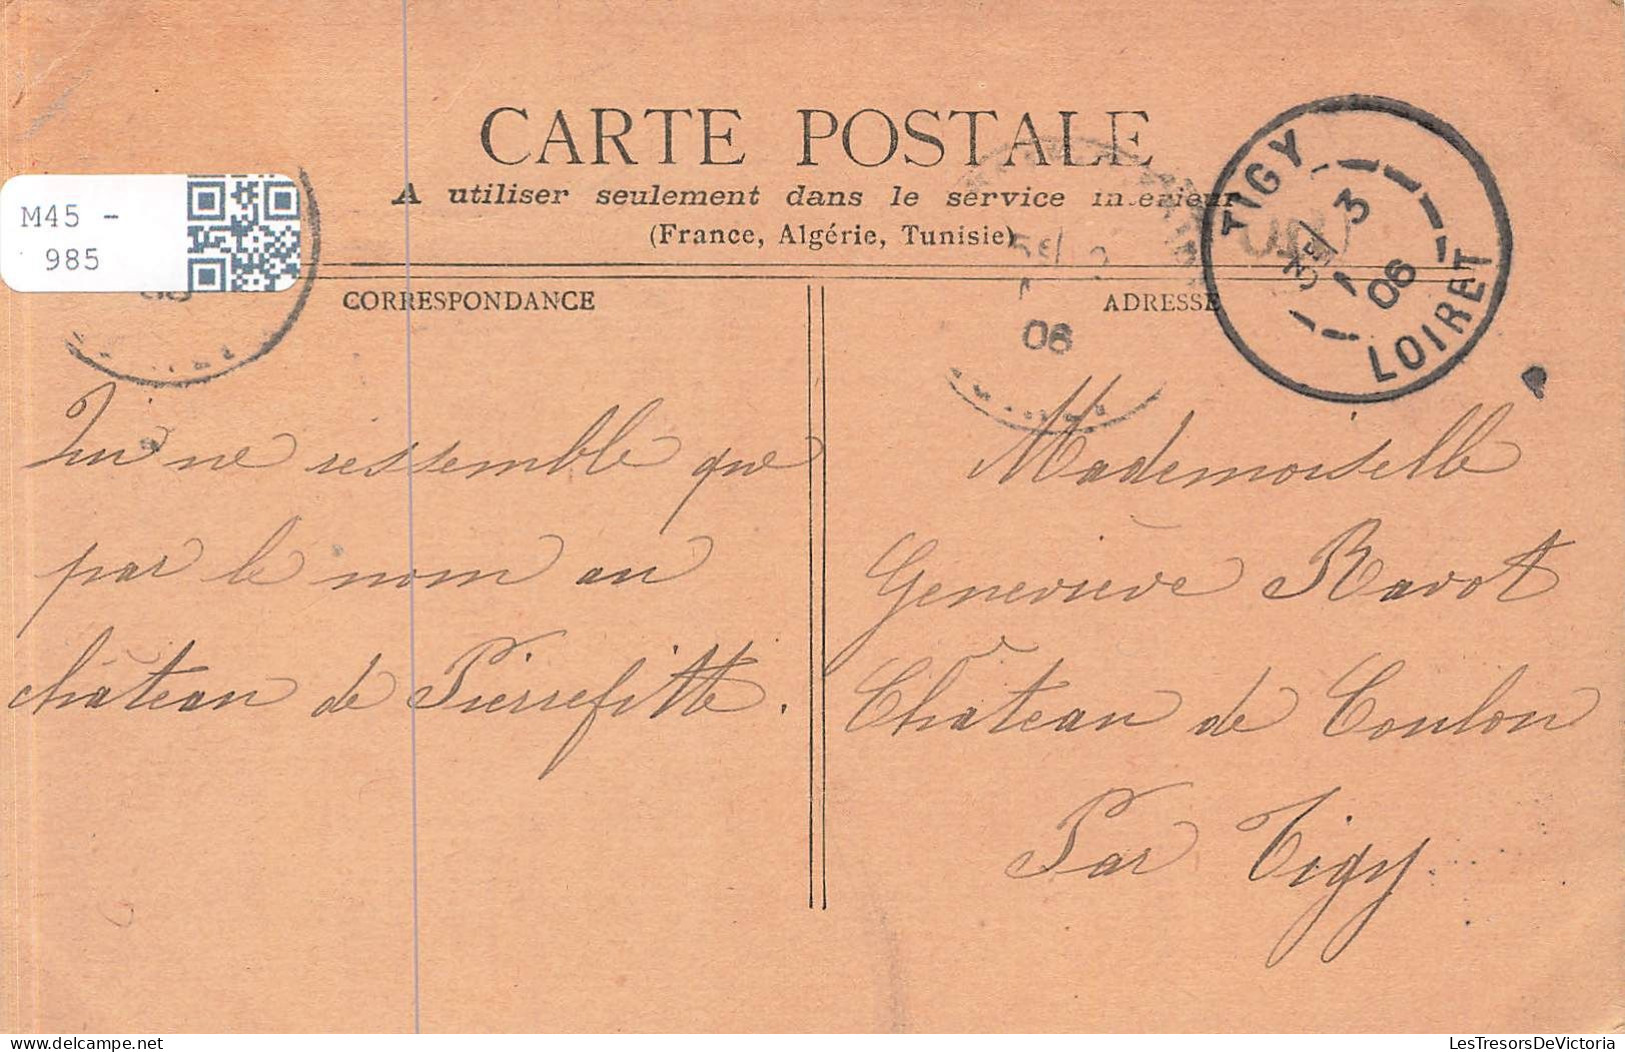 CARTE POSTALE
A utiliser seulement dans le service intérieur
(France, Algérie, Tunisie)
M45 -
985
CORRESPONDANCE
ADRESSE
TIGY
3
06
LOIRET
06
Qui ne ressemble que
par le nom au
château de Pierrefitte.
Mademoiselle
Geneviève Ravot
Château de Coulon
Par Tigy.
delcampe.net
LesTresorsDeVictoria